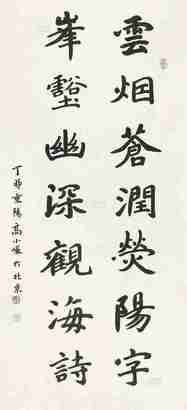 雲烟蒼潤熒陽字
峯壑幽深觀海詩
丁卯重陽高小巖於北京